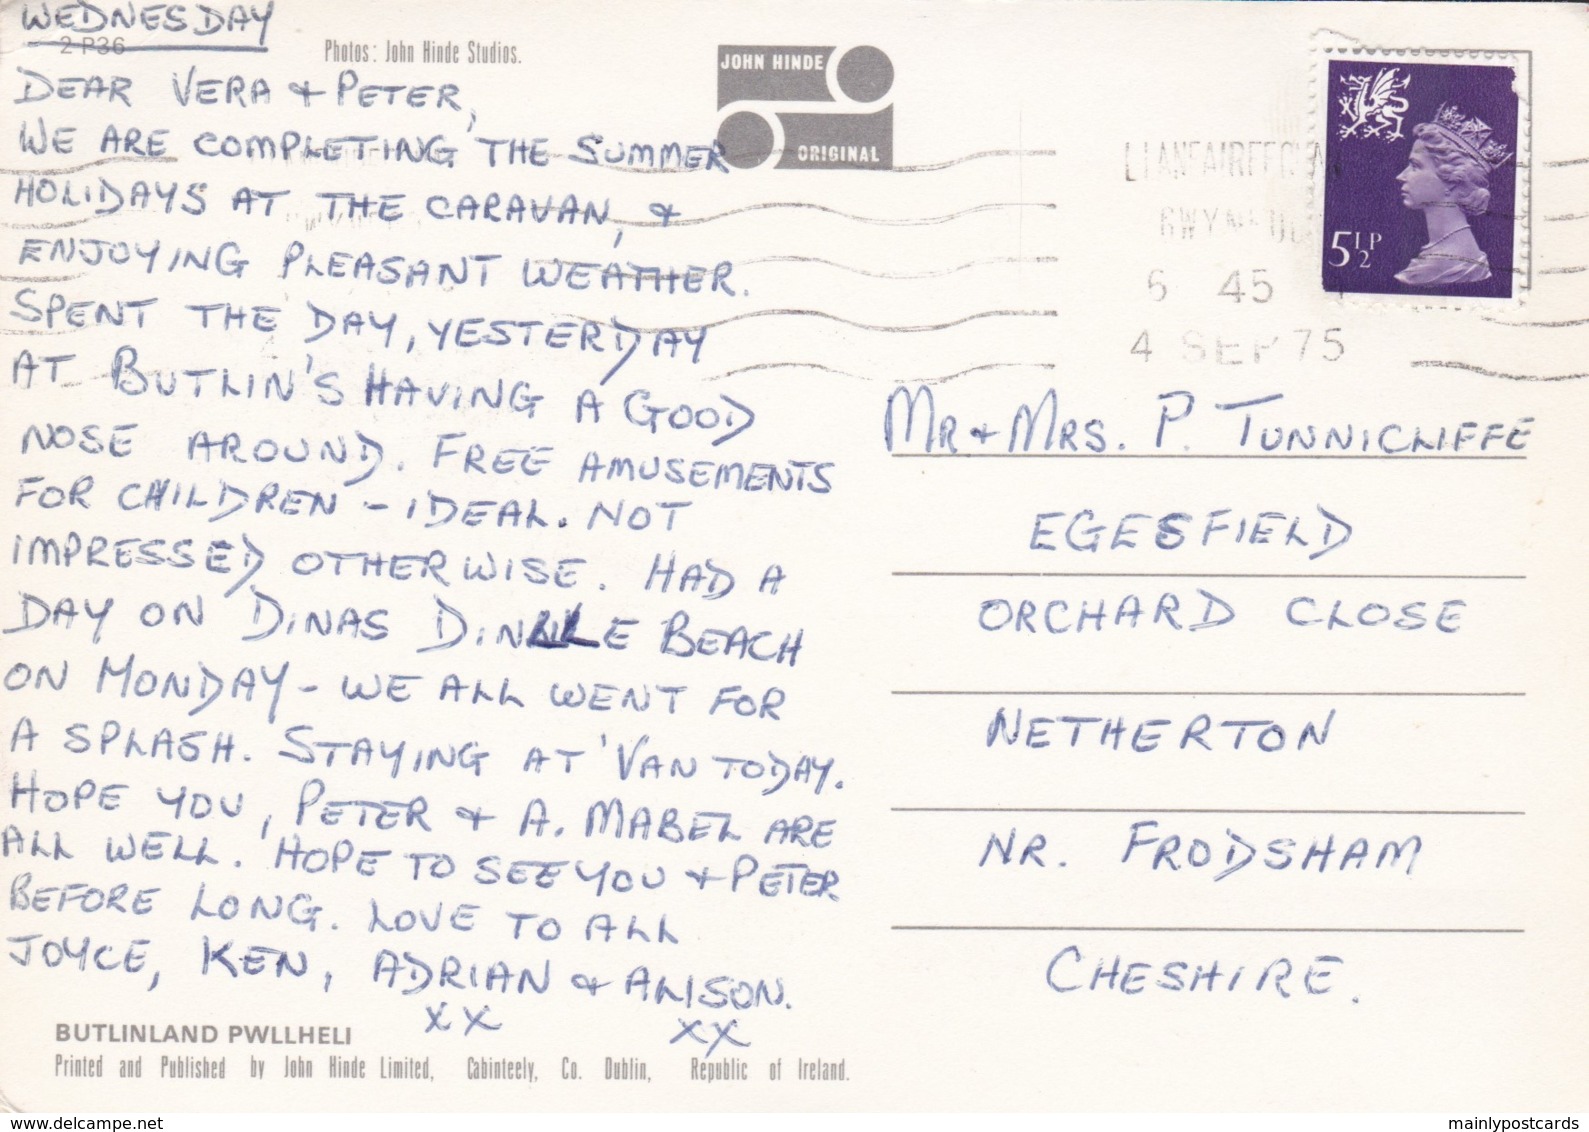 WEDNESDAY
2 P36
Photos: John Hinde Studios.
JOHN HINDE
ORIGINAL
DEAR VERA & PETER,
WE ARE COMPLETING THE SUMMER
HOLIDAYS AT THE CARAVAN, &
ENJOYING PLEASANT WEATHER.
SPENT THE DAY, YESTERDAY
AT BUTLIN'S HAVING A GOOD
NOSE AROUND. FREE AMUSEMENTS
FOR CHILDREN - IDEAL. NOT
IMPRESSED OTHERWISE. HAD A
DAY ON DINAS DINLLE BEACH
ON MONDAY - WE ALL WENT FOR
A SPLASH. STAYING AT 'VAN TODAY.
HOPE YOU, PETER & A. MABEL ARE
ALL WELL. HOPE TO SEE YOU & PETER
BEFORE LONG. LOVE TO ALL
JOYCE, KEN, ADRIAN & ALISON.
XX XX
BUTLINLAND PWLLHELI
Printed and Published by John Hinde Limited, Cabinteely, Co. Dublin, Republic of Ireland.
5½P
6 45
4 SEP 75
MR & MRS. P. TUNNICLIFFE
EGESFIELD
ORCHARD CLOSE
NETHERTON
NR. FRODSHAM
CHESHIRE.
mainlypostcards